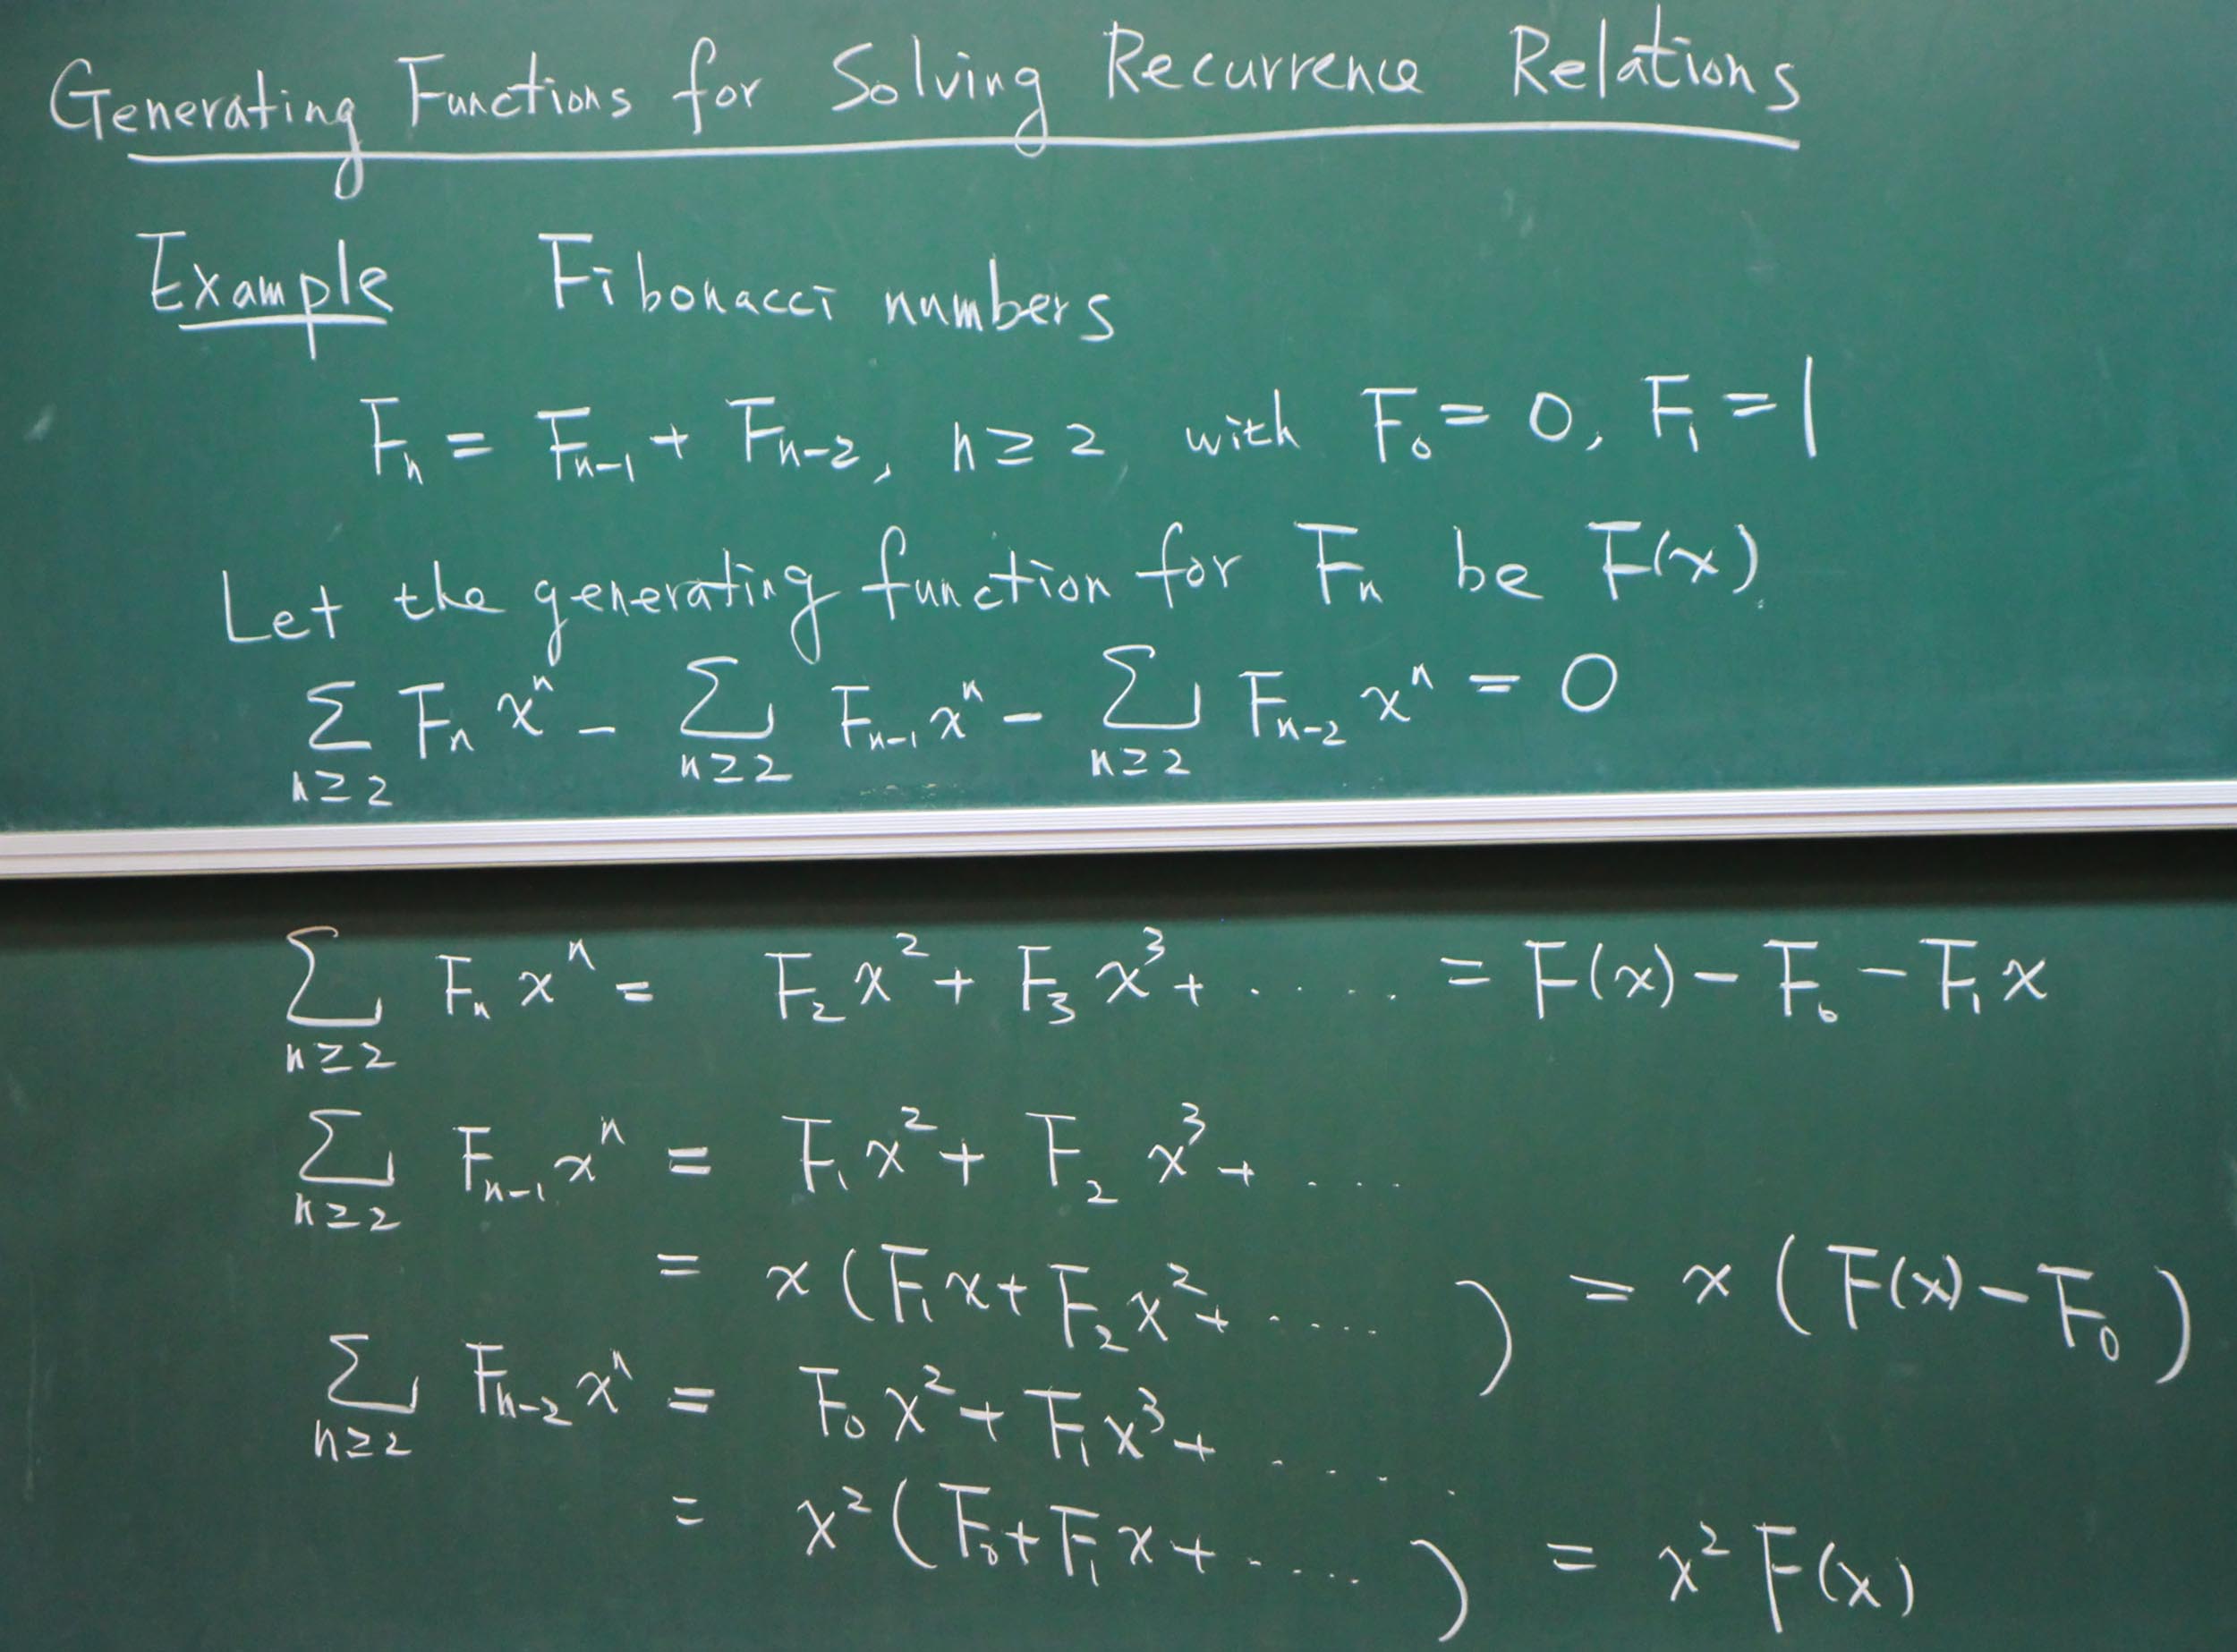 Generating Functions for Solving Recurrence Relations
Example Fibonacci numbers
Fₙ = Fₙ₋₁ + Fₙ₋₂, n ≥ 2 with F₀ = 0, F₁ = 1
Let the generating function for Fₙ be F(x).
∑_{n≥2} Fₙ xⁿ − ∑_{n≥2} Fₙ₋₁ xⁿ − ∑_{n≥2} Fₙ₋₂ xⁿ = 0
∑_{n≥2} Fₙ xⁿ = F₂ x² + F₃ x³ + ..... = F(x) − F₀ − F₁ x
∑_{n≥2} Fₙ₋₁ xⁿ = F₁ x² + F₂ x³ + ....
= x (F₁ x + F₂ x² + ..... ) = x ( F(x) − F₀ )
∑_{n≥2} Fₙ₋₂ xⁿ = F₀ x² + F₁ x³ + .....
= x² ( F₀ + F₁ x + ..... ) = x² F(x)